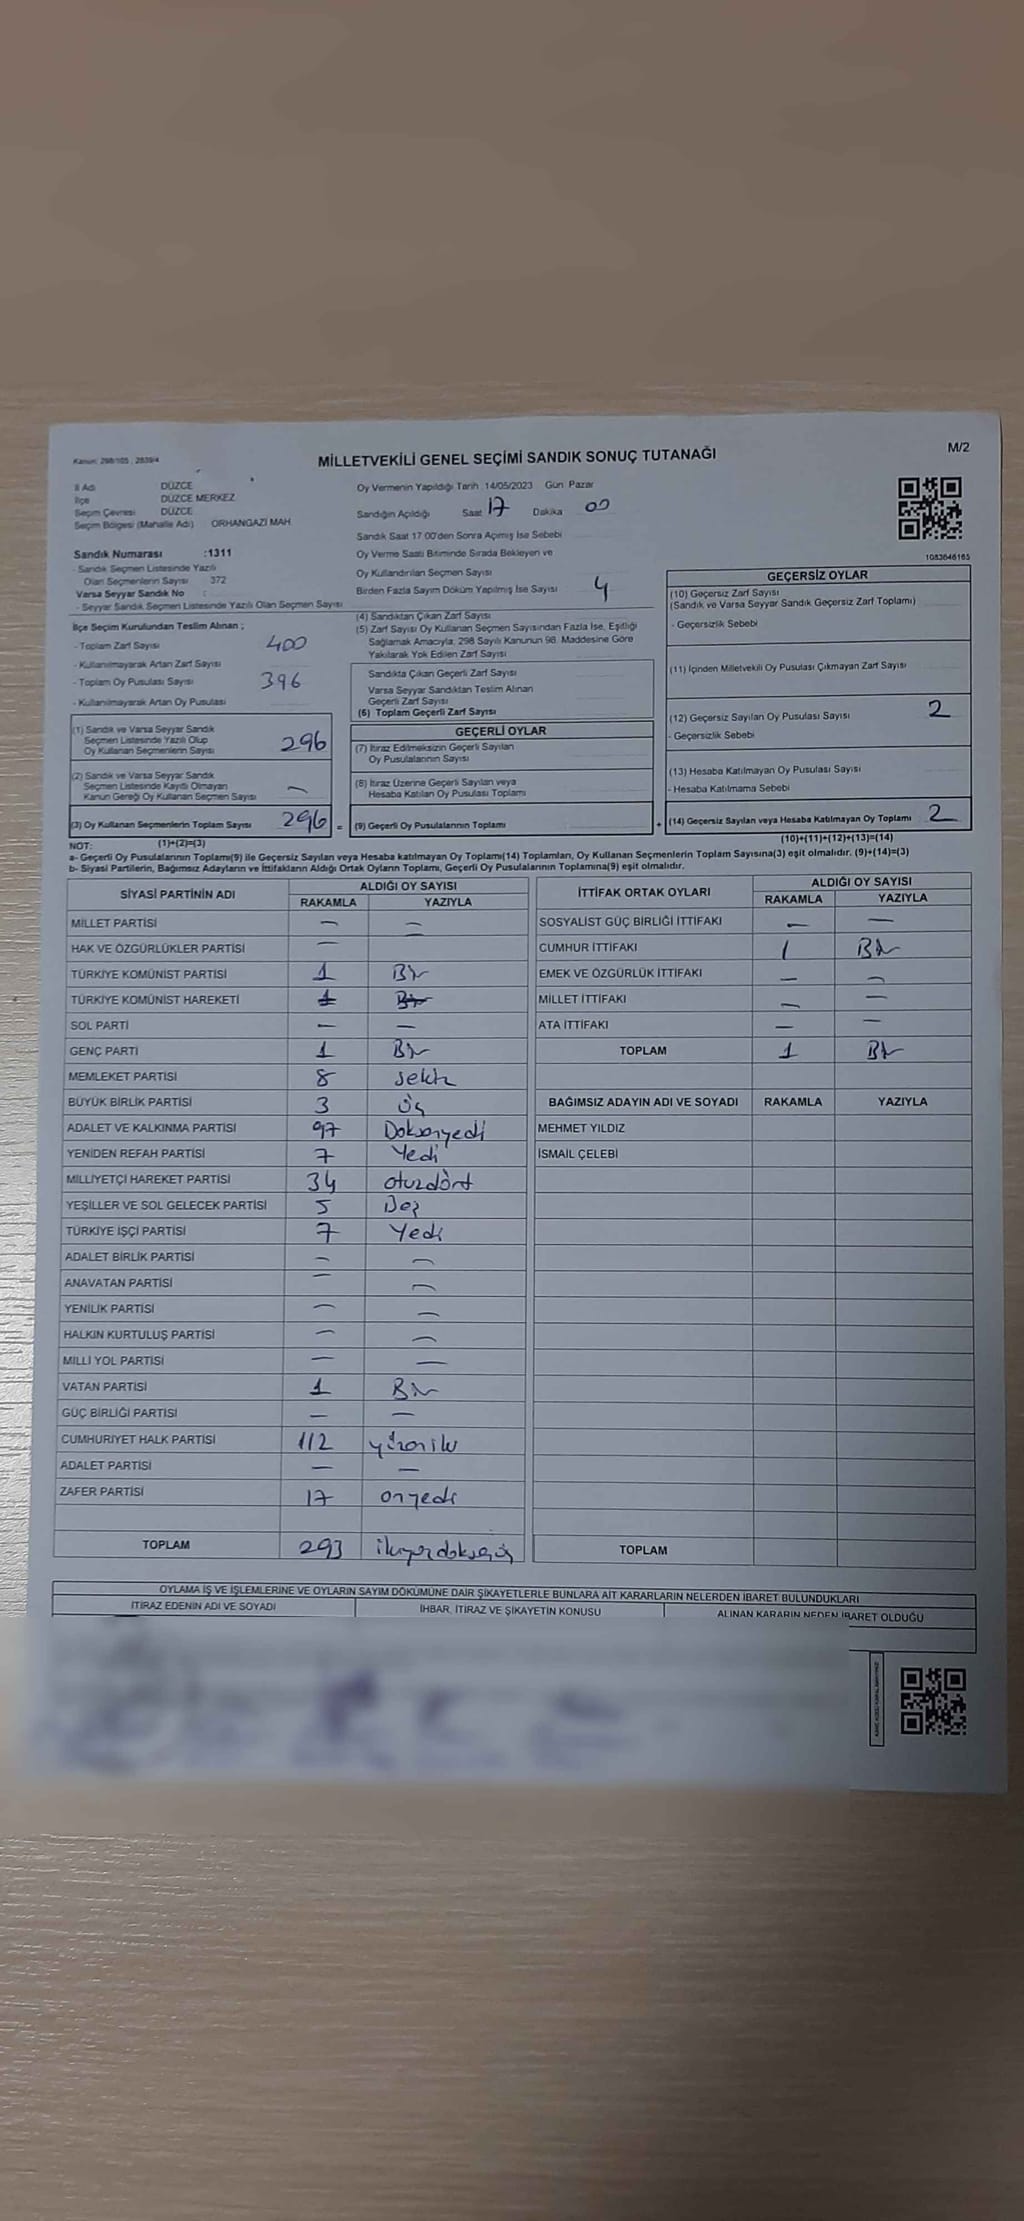 Kanun: 298/105 , 2839/4
MİLLETVEKİLİ GENEL SEÇİMİ SANDIK SONUÇ TUTANAĞI
M/2
İl Adı DÜZCE
İlçe DÜZCE MERKEZ
Seçim Çevresi DÜZCE
Seçim Bölgesi (Mahalle Adı) ORHANGAZİ MAH
Sandık Numarası :1311
- Sandık Seçmen Listesinde Yazılı
Olan Seçmenlerin Sayısı 372
Varsa Seyyar Sandık No :
- Seyyar Sandık Seçmen Listesinde Yazılı Olan Seçmen Sayısı
Oy Vermenin Yapıldığı Tarih 14/05/2023 Gün Pazar
Sandığın Açıldığı Saat 17 Dakika 00
Sandık Saat 17 00'den Sonra Açılmış İse Sebebi
Oy Verme Saati Bitiminde Sırada Bekleyen ve
Oy Kullandırılan Seçmen Sayısı
Birden Fazla Sayım Döküm Yapılmış İse Sayısı 4
1083646165
İlçe Seçim Kurulundan Teslim Alınan ;
- Toplam Zarf Sayısı 400
- Kullanılmayarak Artan Zarf Sayısı
- Toplam Oy Pusulası Sayısı 396
- Kullanılmayarak Artan Oy Pusulası
(1) Sandık ve Varsa Seyyar Sandık
Seçmen Listesinde Yazılı Olup
Oy Kullanan Seçmenlerin Sayısı 296
(2) Sandık ve Varsa Seyyar Sandık
Seçmen Listesinde Kayıtlı Olmayan
Kanun Gereği Oy Kullanan Seçmen Sayısı —
(3) Oy Kullanan Seçmenlerin Toplam Sayısı 296 =
(4) Sandıktan Çıkan Zarf Sayısı
(5) Zarf Sayısı Oy Kullanan Seçmen Sayısından Fazla İse, Eşitliği
Sağlamak Amacıyla, 298 Sayılı Kanunun 98. Maddesine Göre
Yakılarak Yok Edilen Zarf Sayısı
Sandıkta Çıkan Geçerli Zarf Sayısı
Varsa Seyyar Sandıktan Teslim Alınan
Geçerli Zarf Sayısı
(6) Toplam Geçerli Zarf Sayısı
GEÇERLİ OYLAR
(7) İtiraz Edilmeksizin Geçerli Sayılan
Oy Pusulalarının Sayısı
(8) İtiraz Üzerine Geçerli Sayılan veya
Hesaba Katılan Oy Pusulası Toplamı
(9) Geçerli Oy Pusulalarının Toplamı +
GEÇERSİZ OYLAR
(10) Geçersiz Zarf Sayısı
(Sandık ve Varsa Seyyar Sandık Geçersiz Zarf Toplamı)
- Geçersizlik Sebebi
(11) İçinden Milletvekili Oy Pusulası Çıkmayan Zarf Sayısı
(12) Geçersiz Sayılan Oy Pusulası Sayısı 2
- Geçersizlik Sebebi
(13) Hesaba Katılmayan Oy Pusulası Sayısı
- Hesaba Katılmama Sebebi
(14) Geçersiz Sayılan veya Hesaba Katılmayan Oy Toplamı 2
NOT: (1)+(2)=(3)
(10)+(11)+(12)+(13)=(14)
a- Geçerli Oy Pusulalarının Toplamı(9) ile Geçersiz Sayılan veya Hesaba katılmayan Oy Toplamı(14) Toplamları, Oy Kullanan Seçmenlerin Toplam Sayısına(3) eşit olmalıdır. (9)+(14)=(3)
b- Siyasi Partilerin, Bağımsız Adayların ve İttifakların Aldığı Ortak Oyların Toplamı, Geçerli Oy Pusulalarının Toplamına(9) eşit olmalıdır.
SİYASİ PARTİNİN ADI ALDIĞI OY SAYISI
RAKAMLA YAZIYLA
MİLLET PARTİSİ — —
HAK VE ÖZGÜRLÜKLER PARTİSİ —
TÜRKİYE KOMÜNİST PARTİSİ 1 Bir
TÜRKİYE KOMÜNİST HAREKETİ 1 Bir
SOL PARTİ — —
GENÇ PARTİ 1 Bir
MEMLEKET PARTİSİ 8 sekiz
BÜYÜK BİRLİK PARTİSİ 3 Üç
ADALET VE KALKINMA PARTİSİ 97 Doksanyedi
YENİDEN REFAH PARTİSİ 7 Yedi
MİLLİYETÇİ HAREKET PARTİSİ 34 otuzdört
YEŞİLLER VE SOL GELECEK PARTİSİ 5 Beş
TÜRKİYE İŞÇİ PARTİSİ 7 Yedi
ADALET BİRLİK PARTİSİ — —
ANAVATAN PARTİSİ — —
YENİLİK PARTİSİ — —
HALKIN KURTULUŞ PARTİSİ — —
MİLLİ YOL PARTİSİ — —
VATAN PARTİSİ 1 Bir
GÜÇ BİRLİĞİ PARTİSİ — —
CUMHURİYET HALK PARTİSİ 112 yüzoniki
ADALET PARTİSİ — —
ZAFER PARTİSİ 17 onyedi
TOPLAM 293 ikiyüzdoksanüç
İTTİFAK ORTAK OYLARI ALDIĞI OY SAYISI
RAKAMLA YAZIYLA
SOSYALİST GÜÇ BİRLİĞİ İTTİFAKI — —
CUMHUR İTTİFAKI 1 Bir
EMEK VE ÖZGÜRLÜK İTTİFAKI — —
MİLLET İTTİFAKI — —
ATA İTTİFAKI — —
TOPLAM 1 Bir
BAĞIMSIZ ADAYIN ADI VE SOYADI RAKAMLA YAZIYLA
MEHMET YILDIZ
İSMAİL ÇELEBİ
TOPLAM
OYLAMA İŞ VE İŞLEMLERİNE VE OYLARIN SAYIM DÖKÜMÜNE DAİR ŞİKAYETLERLE BUNLARA AİT KARARLARIN NELERDEN İBARET BULUNDUKLARI
İTİRAZ EDENİN ADI VE SOYADI İHBAR, İTİRAZ VE ŞİKAYETİN KONUSU ALINAN KARARIN NEDEN İBARET OLDUĞU